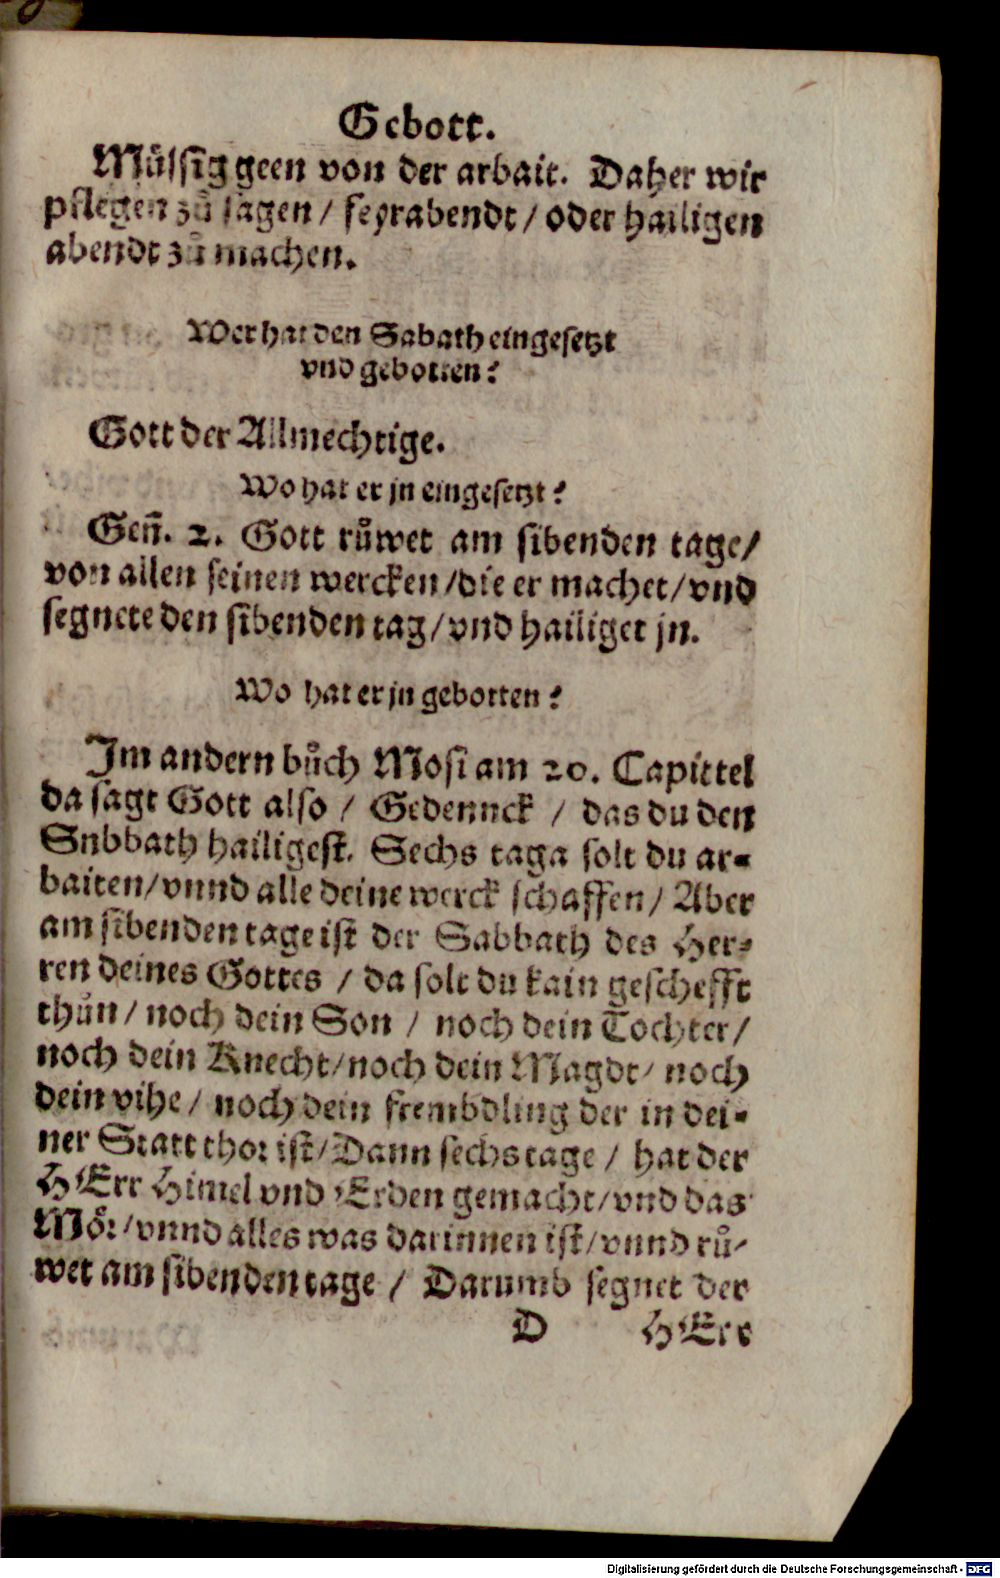 Gebott.
Müssig geen von der arbait. Daher wir
pflegen zů sagen / feyrabendt / oder hailigen
abendt zů machen.
Wer hat den Sabath eingesetzt
vnd gebotten?
Gott der Allmechtige.
Wo hat er jn eingesetzt?
Geñ. 2. Gott růwet am sibenden tage/
von allen seinen wercken /die er machet/ vnd
segnete den sibenden tag/ vnd hailiget jn.
Wo hat er jn gebotten?
Im andern bůch Mosi am 20. Capittel
da sagt Gott also / Gedennck / das du den
Snbbath hailigest. Sechs taga solt du ar-
baiten/ vnnd alle deine werck schaffen / Aber
am sibenden tage ist der Sabbath des Her-
ren deines Gottes / da solt du kain geschefft
thůn / noch dein Son / noch dein Tochter/
noch dein Knecht/ noch dein Magdt/ noch
dein vihe / noch dein frembdling der in dei-
ner Statt thor ist/ Dann sechs tage / hat der
HErr Himel vnd Erden gemacht/ vnd das
Mör/ vnnd alles was darinnen ist/ vnnd rů-
wet am sibenden tage / Darumb segnet der
D HErr
Digitalisierung gefördert durch die Deutsche Forschungsgemeinschaft - DFG